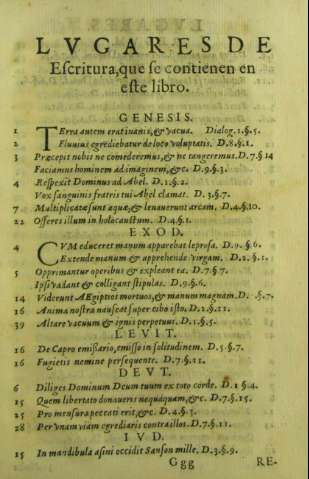 LVGARES DE
Escritura, que se contienen en
este libro.
GENESIS.
1 TErra autem erat inanis, & vacua. Dialog. 1. §. 5.
2 Fluuius egrediebatur de loco voluptatis. D. 8. §. 1.
3 Præcepit nobis ne comederemus, & ne tangeremus. D. 7. § 14
Faciamus hominem ad imaginem, &c. D. 9. §. 3.
4 Respexit Dominus ad Abel. D. 1. §. 2.
Vox sanguinis fratris tui Abel clamat. D. 3. §. 7.
7 Multiplicatæ sunt aquæ, & leuauerunt arcam. D. 4. §. 10.
22 Offeres illum in holocaustum. D. 4. §. 1.
EXOD.
4 CVM educeret manum apparebat leprosa. D. 9. §. 6.
Extende manum & apprehende virgam. D. 2. §. 1.
5 Opprimantur operibus & expleant ea. D. 7. §. 7
Ipsi vadant & colligant stipulas. D. 9. §. 6.
14 Viderunt AEgiptios mortuos, & manum magnam. D. §. 7.
16 Anima nostra nauseat super cibo isto. D. 2. §. 11.
39 Altare vacuum & ignis perpetuus. D. 1. §. 5.
LEVIT.
16 De Capro emissario, emisso in solitudinem. D. 5. §. 7.
26 Fugietis nemine persequente. D. 7. §. 12.
DEVT.
6 Diliges Dominum Deum tuum ex toto corde. D. 1 § 4.
15 Quem libertate donaueris nequaquam, &c. D. 7. §. 15.
25 Pro mensura peccati erit, &c. D. 4. §. 3.
28 Per vnam viam egrediaris contra illos. D. 7. §. 12.
IVD.
15 In mandibula asini occidit Sanson mille. D. 3. §. 9.
Ggg RE-